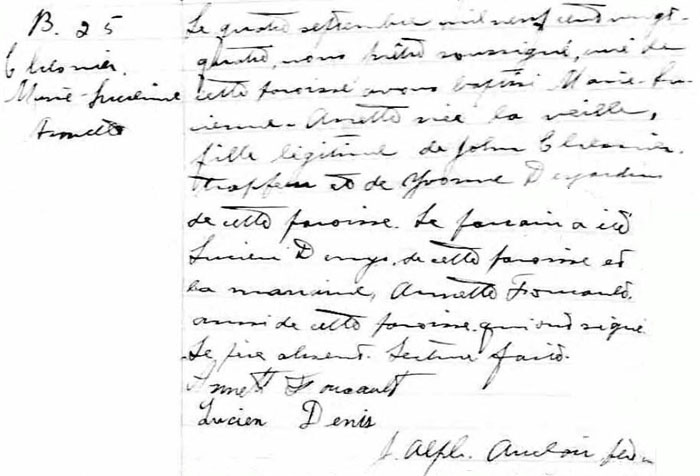 B. 25
Chresnier.
Marie-Lucienne
Annette
Le quatre septembre mil neuf cent vingt-
quatre, nous prêtre soussigné, curé de
cette paroisse avons baptisé Marie-Lu-
cienne-Annette née la veille,
fille légitime de John
trappeur et de Yvonne Desjardins
de cette paroisse. Le parrain a été
Lucien Denys, de cette paroisse et
la marraine, Annette Foucault,
aussi de cette paroisse qui ont signé
Le père absent. Lecture faite.
Annett Foucault
Lucien Denis
J. Alph. Auclair